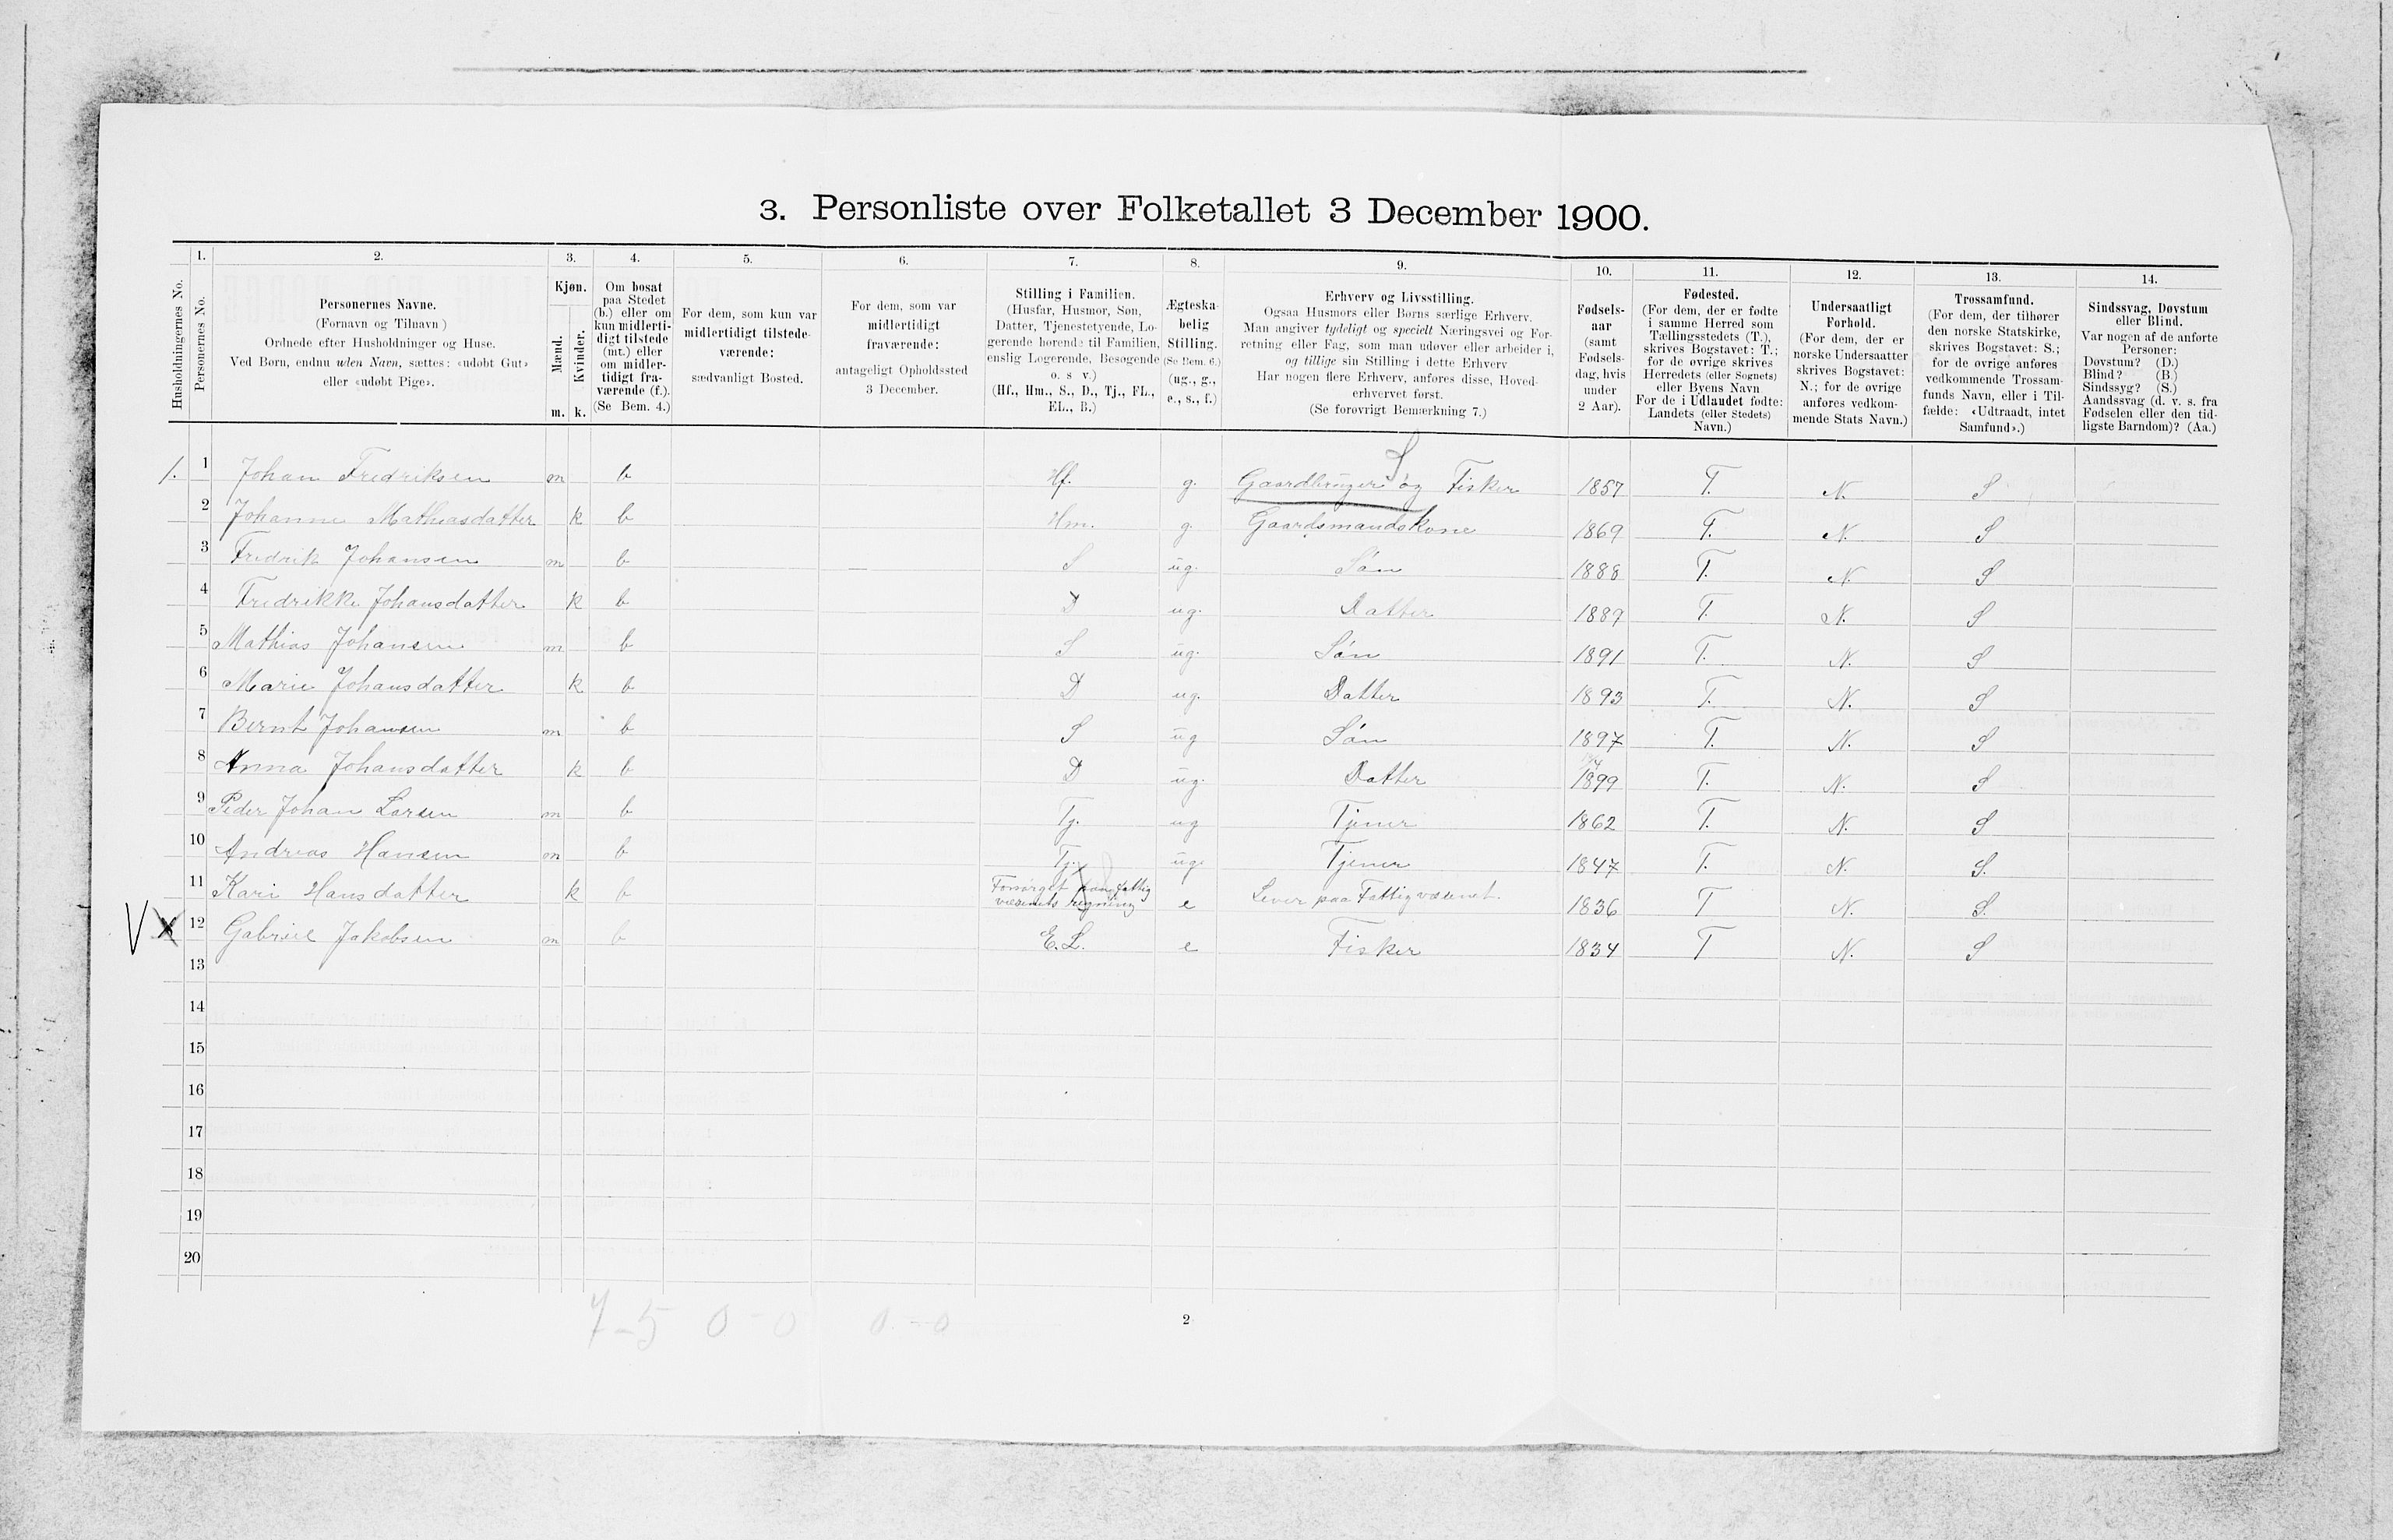 3. Personliste over Folketallet 3 December 1900.
1. 2. 3. 4. 5. 6. 7. 8. 9. 10. 11. 12. 13. 14.
Husholdningernes No.
Personernes No.
Personernes Navne.
(Fornavn og Tilnavn)
Ordnede efter Husholdninger og Huse.
Ved Børn, endnu uden Navn, sættes: «udøbt Gut»
eller «udøbt Pige».
Kjøn.
Mænd.
Kvinder.
m. k.
Om bosat
paa Stedet
(b.) eller om
kun midlerti-
digt tilstede
(mt.) eller
om midler-
tidigt fra-
værende (f.).
(Se Bem. 4.)
For dem, som kun var
midlertidigt tilstede-
værende:
sædvanligt Bosted.
For dem, som var
midlertidigt
fraværende:
antageligt Opholdssted
3 December.
Stilling i Familien.
(Husfar, Husmor, Søn,
Datter, Tjenestetyende, Lo-
gerende hørende til Familien,
enslig Logerende, Besøgende
o. s v.)
(Hf., Hm., S., D., Tj., FL.,
EL., B.)
Ægteska-
belig
Stilling.
(Se Bem. 6.)
(ug., g.,
e., s., f.)
Erhverv og Livsstilling.
Ogsaa Husmors eller Børns særlige Erhverv.
Man angiver tydeligt og specielt Næringsvei og For-
retning eller Fag, som man udøver eller arbeider i,
og tillige sin Stilling i dette Erhverv
Har nogen flere Erhverv, anføres disse, Hoved-
erhvervet først.
(Se forøvrigt Bemærkning 7.)
Fødsels-
aar
(samt
Fødsels-
dag, hvis
under
2 Aar).
Fødested.
(For dem, der er fødte
i samme Herred som
Tællingsstedets (T.),
skrives Bogstavet: T.;
for de øvrige skrives
Herredets (eller Sognets)
eller Byens Navn
For de i Udlandet fødte:
Landets (eller Stedets)
Navn.)
Undersaatligt
Forhold.
(For dem, der er
norske Undersaatter
skrives Bogstavet:
N.; for de øvrige
anføres vedkom-
mende Stats Navn.)
Trossamfund.
(For dem, der tilhører
den norske Statskirke,
skrives Bogstavet: S.;
for de øvrige anføres
vedkommende Trossam-
funds Navn, eller i Til-
fælde: «Udtraadt, intet
Samfund».)
Sindssvag, Døvstum
eller Blind.
Var nogen af de anførte
Personer:
Døvstum? (D.)
Blind? (B.)
Sindssyg? (S.)
Aandssvag (d. v. s. fra
Fødselen eller den tid-
ligste Barndom)? (Aa.)
1. 1 Johan Fredriksen m b Hf. g. Gaardbruger og Fisker 1857 T. N. S
2 Johanne Mathiasdatter k b Hm. g. Gaardsmandskone 1869 T. N. S
3 Fredrik Johansen m b S ug. Søn 1888 T. N. S
4 Fredrikke Johansdatter k b D ug. Datter 1889 T. N. S
5 Mathias Johansen m b S ug. Søn 1891 T. N. S
6 Marie Johansdatter k b D ug. Datter 1893 T. N. S
7 Bernt Johansen m b S ug Søn 1897 T. N. S
8 Anna Johansdatter k b D ug. Datter 1899 T. N. S
9 Peder Johan Larsen m b Tj. ug Tjener 1862 T. N. S
10 Andreas Hansen m b Tj. ug. Tjener 1847 T. N. S.
11 Kari Hansdatter k b Forsørget paa fattig
væsenets regning e Lever paa Fattigvæsenet. 1836 T N. S.
V x 12 Gabriel Jakobsen m b E.L. e Fisker 1834 T N. S
13
14
15
16
17
18
19
20
7-5 0-0 0-0
2